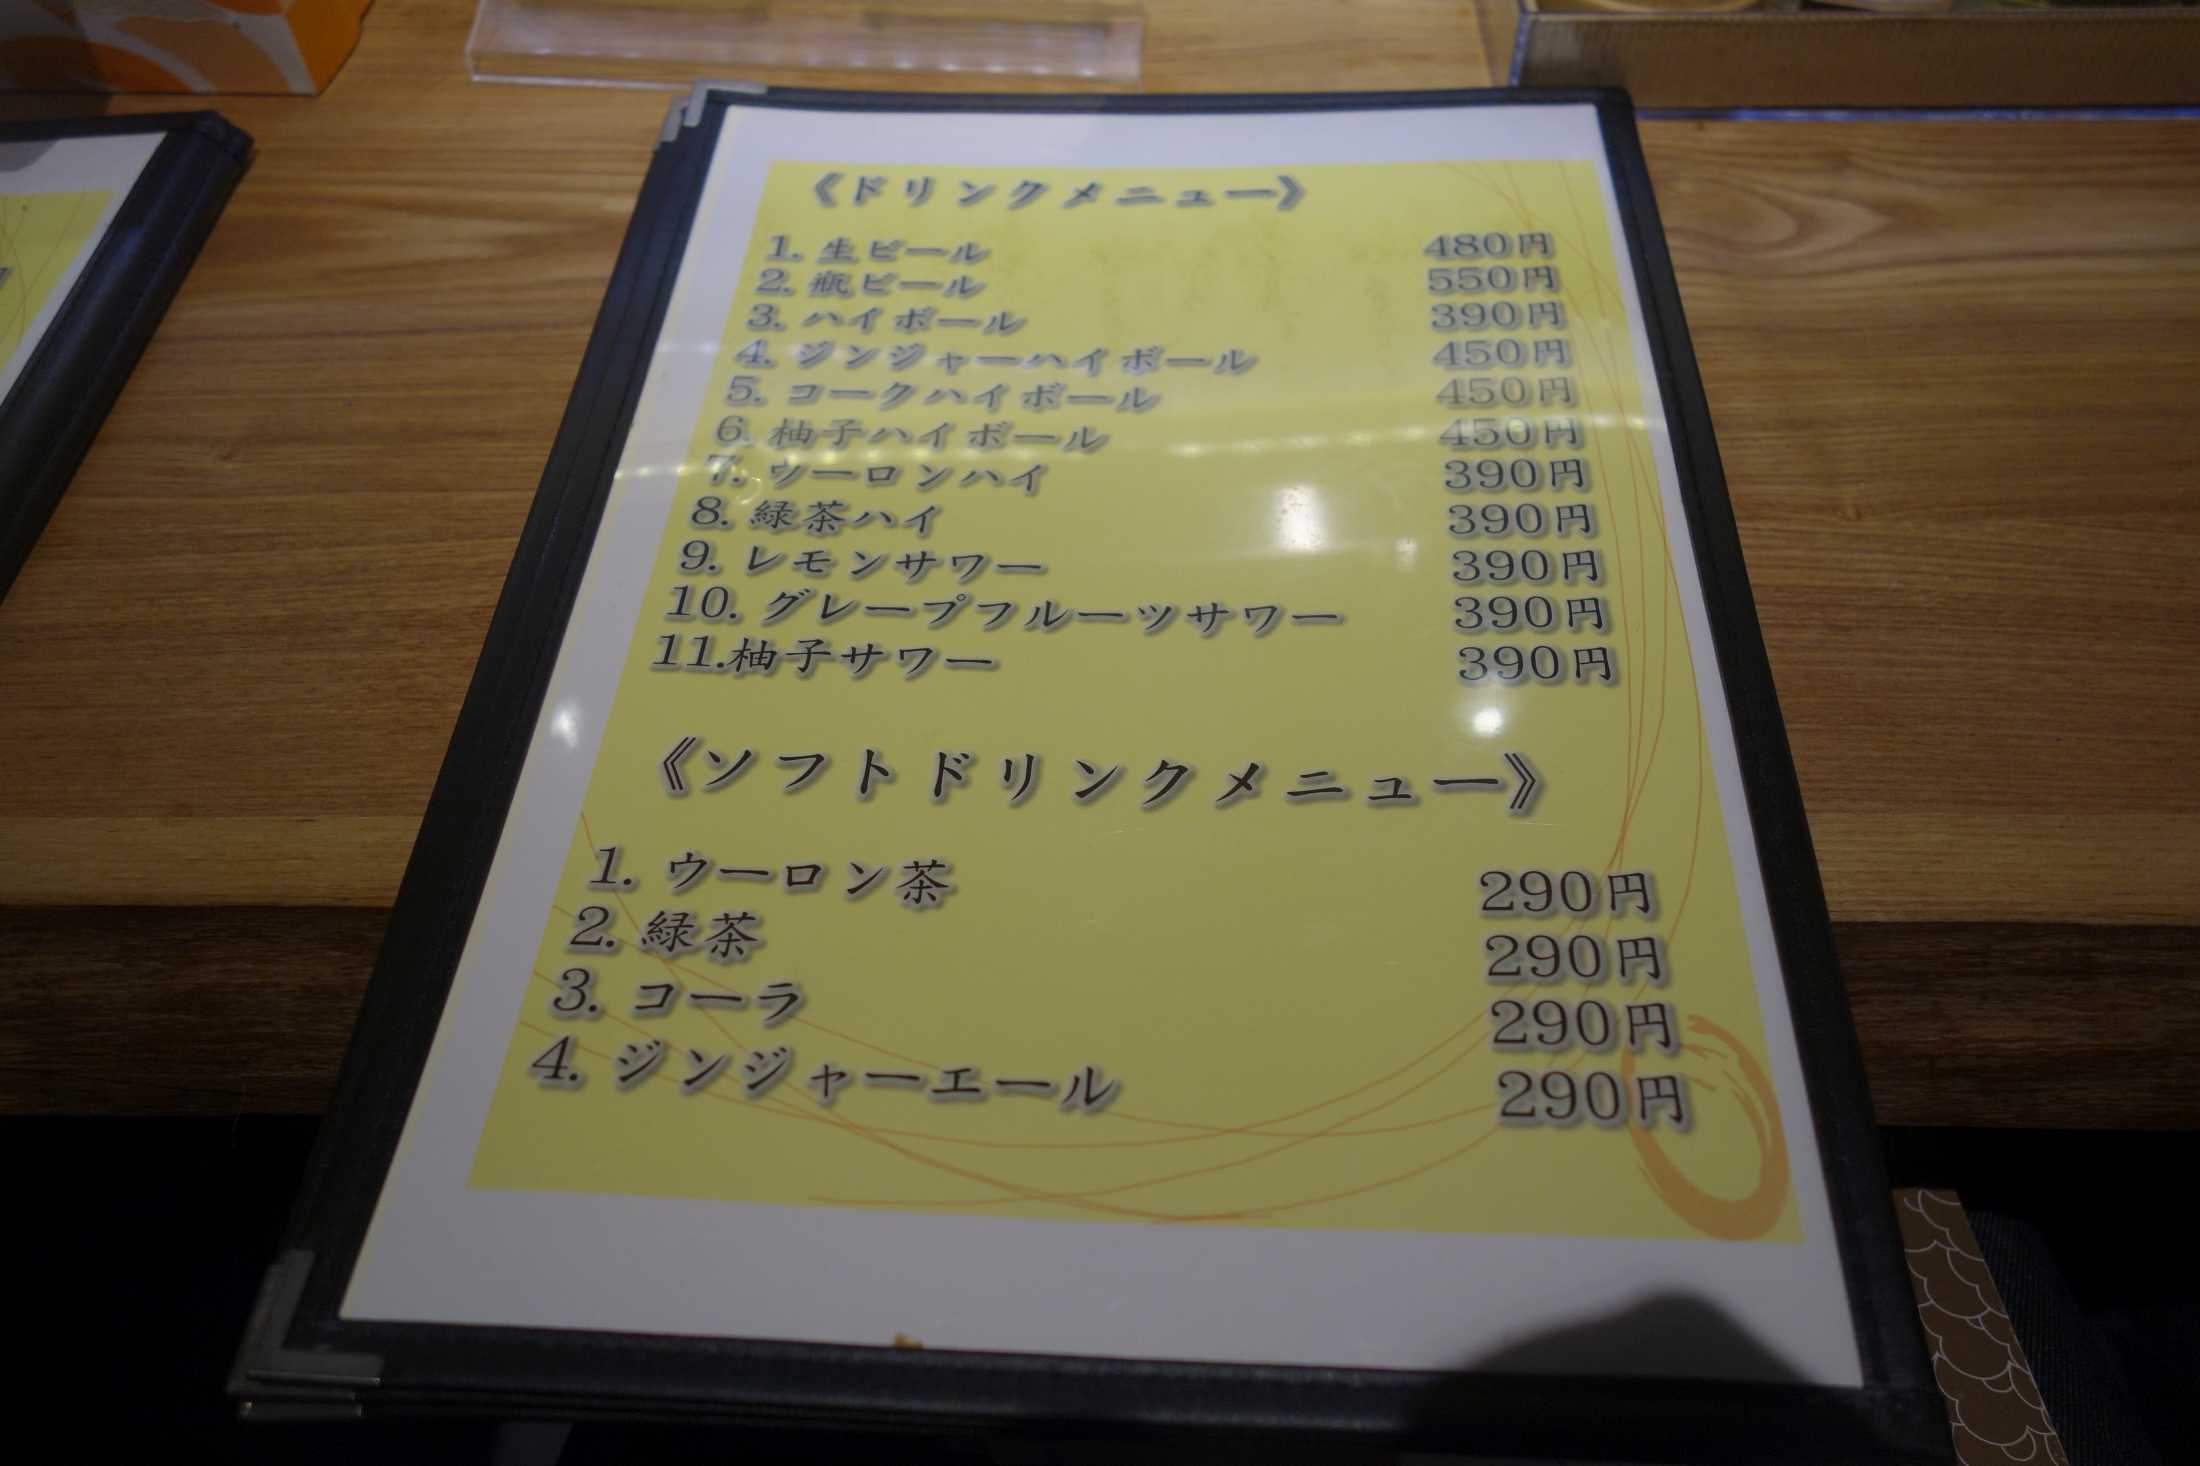 《ドリンクメニュー》
1. 生ビール 480円
2. 瓶ビール 550円
3. ハイボール 390円
4. ジンジャーハイボール 450円
5. コークハイボール 450円
6. 柚子ハイボール 450円
7. ウーロンハイ 390円
8. 緑茶ハイ 390円
9. レモンサワー 390円
10. グレープフルーツサワー 390円
11.柚子サワー 390円
《ソフトドリンクメニュー》
1. ウーロン茶 290円
2. 緑茶 290円
3. コーラ 290円
4. ジンジャーエール 290円